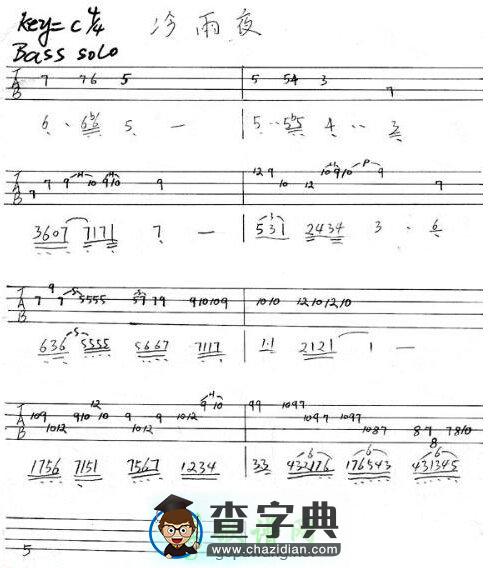 Key=C 4/4 冷雨夜
Bass solo
T 7 76 5 5 54 3
A
B 7
6·· 6♭6 5 — 5·· 5♭5 4·· 3
T 7 9 H 10 9 H 10 9 12 9 10 12 10 9 10 P 9 7
A
B 7
3607 7171 7 — 531 2434 3 · 6
T 7 9 7 S 5555 57 79 910109 1010 12101210
A
B
636 S 5555 5667 7117 1·1 2121 1 —
T 109 1012 910 12 10 9 1012 9 1012 9 H 10 99 1097 1097 1097 1087 87 8 7810
A
B
1756 7151 7567 1234 33 432176 176543 431345
5
查字典
www.chazidian.com